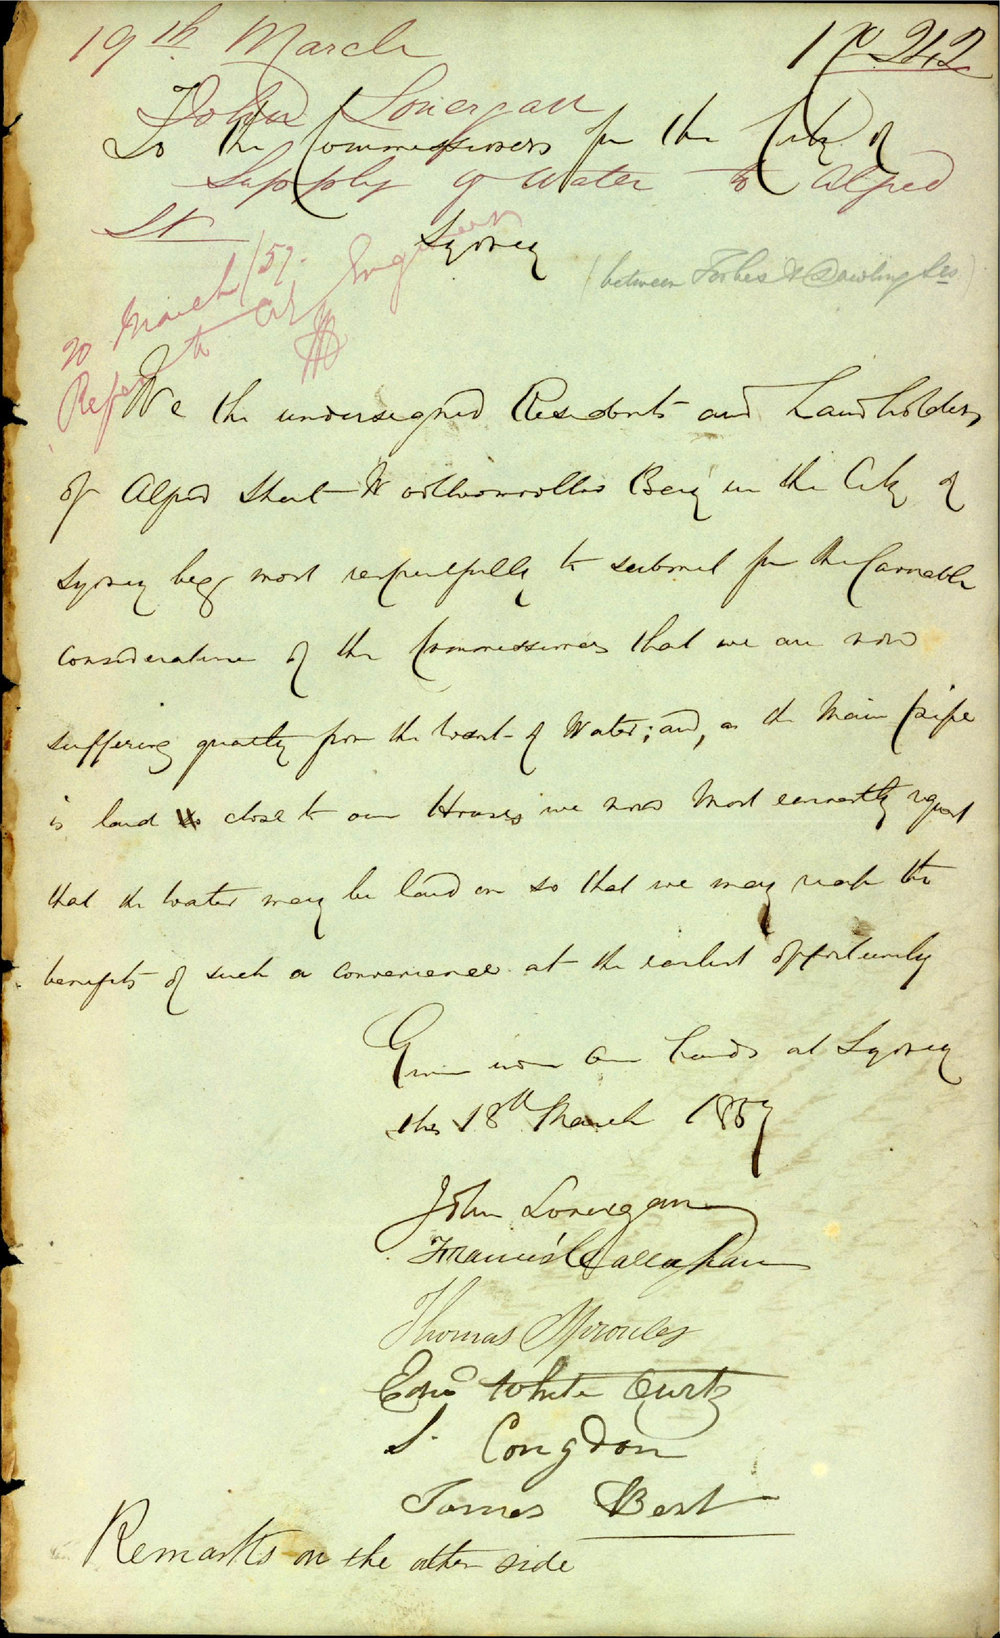 19th March
No 242
John Lonergan
To the Commissioners for the City of
Supply of Water to Alfred
St
Sydney
(between Forbes & Dowling Sts)
20 March/57.
Refer to City Engineer
We the undersigned Residents and Landholders
of Alfred Street Woolloomoolloo Bay in the City of
Sydney begg most respectfully to submit for the favorable
consideration of the Commissioners that we are now
suffering greatly from the want of Water; and, as the Main pipe
is laid close to our Houses we now most earnestly request
that the water may be laid on so that we may reap the
benefits of such a convenience at the earliest opportunity
Given under Our hands at Sydney
this 18th March 1857
John Lonergan
Francis Callaghan
Thomas Sproules
Edwd White Curtz
S. Congdon
James Best
Remarks on the other side